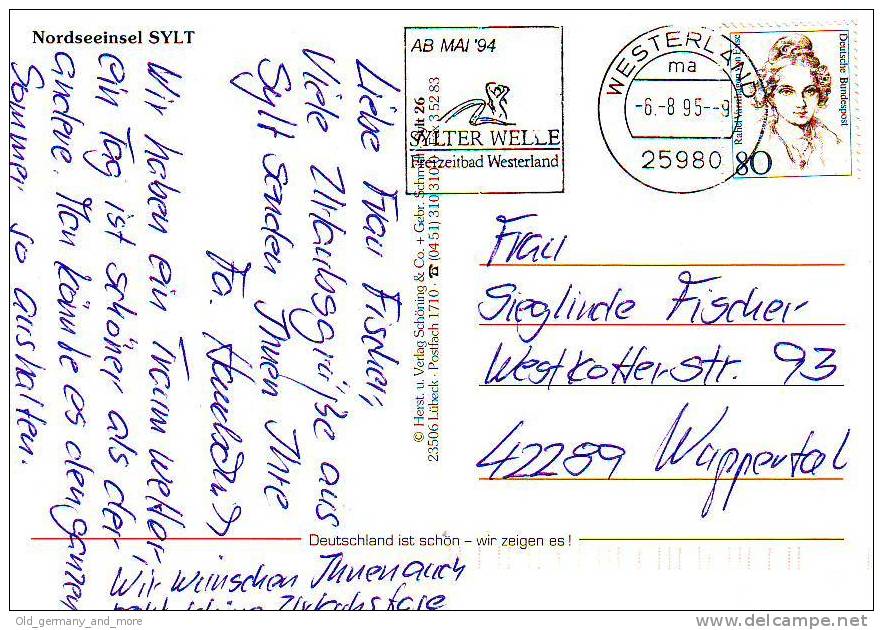 Nordseeinsel SYLT
AB MAI '94
SYLTER WELLE
Freizeitbad Westerland
WESTERLAND
ma
-6.-8 95--9
25980
Deutsche Bundespost
80
Liebe Frau Fischer,
Viele Urlaubsgrüße aus
Sylt senden Ihnen Ihre
Fa.
Wir haben ein Traumwetter,
ein Tag ist schöner als der
andere. Man könnte es den ganzen
Sommer so aushalten.
Wir wünschen Ihnen auch
© Herst. u. Verlag Schöning & Co. + Gebr. Schmidt
23506 Lübeck · Postfach 1710 · ☎ (04 51) 310 310
Frau
Sieglinde Fischer
Westkotterstr. 93
42289 Wuppertal
Deutschland ist schön – wir zeigen es!
Old_germany_and_more
delcampe.net